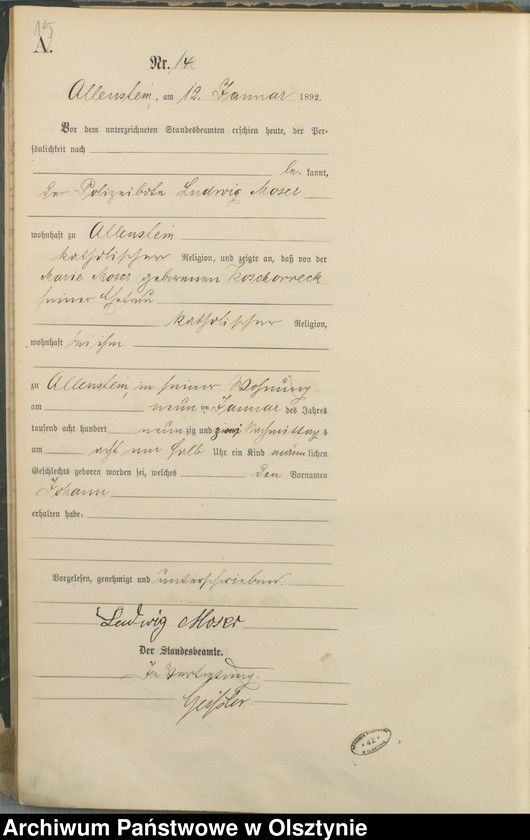 15
A.
Nr. 14
Allenstein, am 12. Januar 1892.
Vor dem unterzeichneten Standesbeamten erschien heute, der Per-
sönlichkeit nach
be kannt,
der Polizeibote Ludwig Moser
wohnhaft zu Allenstein
katholischer Religion, und zeigte an, daß von der
Marie Moser geborenen Koschorreck
seiner Ehefrau
katholischer Religion,
wohnhaft bei ihm
zu Allenstein in seiner Wohnung
am neun ten Januar des Jahres
tausend acht hundert neun zig und zwei Nachmittag s
um acht ein halb Uhr ein Kind männ lichen
Geschlechts geboren worden sei, welches den Vornamen
Johann
erhalten habe.
Vorgelesen, genehmigt und unterschrieben
Ludwig Moser
Der Standesbeamte.
In Vertretung.
Geißler
42
Archiwum Państwowe w Olsztynie